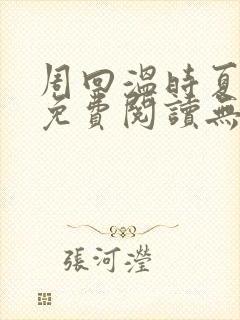 周回溫時夏
免費閱讀無
張河瀅